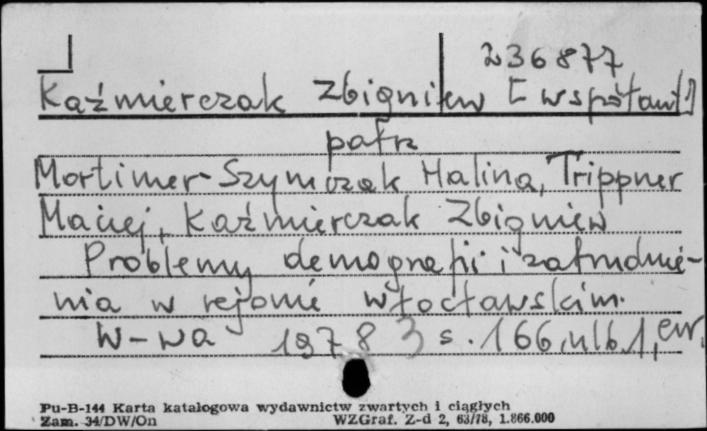 236877
Kaźmierczak Zbigniew [współaut.]
patrz
Mortimer-Szymczak Halina, Trippner
Maciej, Kaźmierczak Zbigniew
Problemy demografii i zatrudnie-
nia w rejonie włocławskim.
W-wa 1978 3 s. 166, nlb. 1, err.
Pu-B-144 Karta katalogowa wydawnictw zwartych i ciągłych
Zam. 34/DW/On WZGraf. Z-d 2, 63/78, 1.866.000